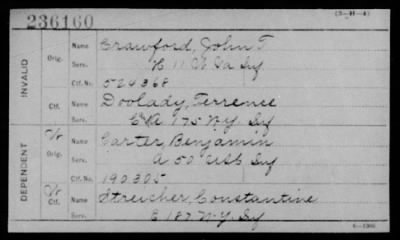 236160
(3-H-4)
INVALID
Orig.
Name Crawford, John T.
Serv. H 11 W Va Inf
Ctf. No. 524368
Ctf.
Name Doolady, Terrence
Serv. A 175 N.Y. Inf
DEPENDENT
W Orig.
Name Carter, Benjamin
Serv. A 50 USC Inf
Ctf. No. 190305
W Ctf.
Name Streicher, Constantine
Serv. E 187 N.Y. Inf